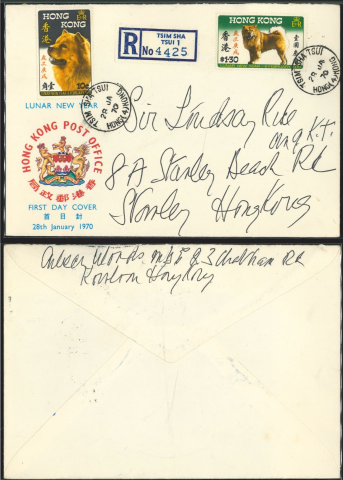 HONG KONG
香港
10c
壹角
R
TSIM SHA
TSUI 1
No 4425
HONG KONG
香港
$1·30
TSIM SHA TSUI
28 JA
70
HONG KONG
TSIM SHA TSUI
28 JA
70
HONG KONG
LUNAR NEW YEAR
HONG KONG POST OFFICE
香港郵政局
FIRST DAY COVER
首日封
28th January 1970
Sir Lindsay Ride
8A Stanley Beach Rd
Stanley HongKong
Woods
3 Chatham Rd
Kowloon HongKong